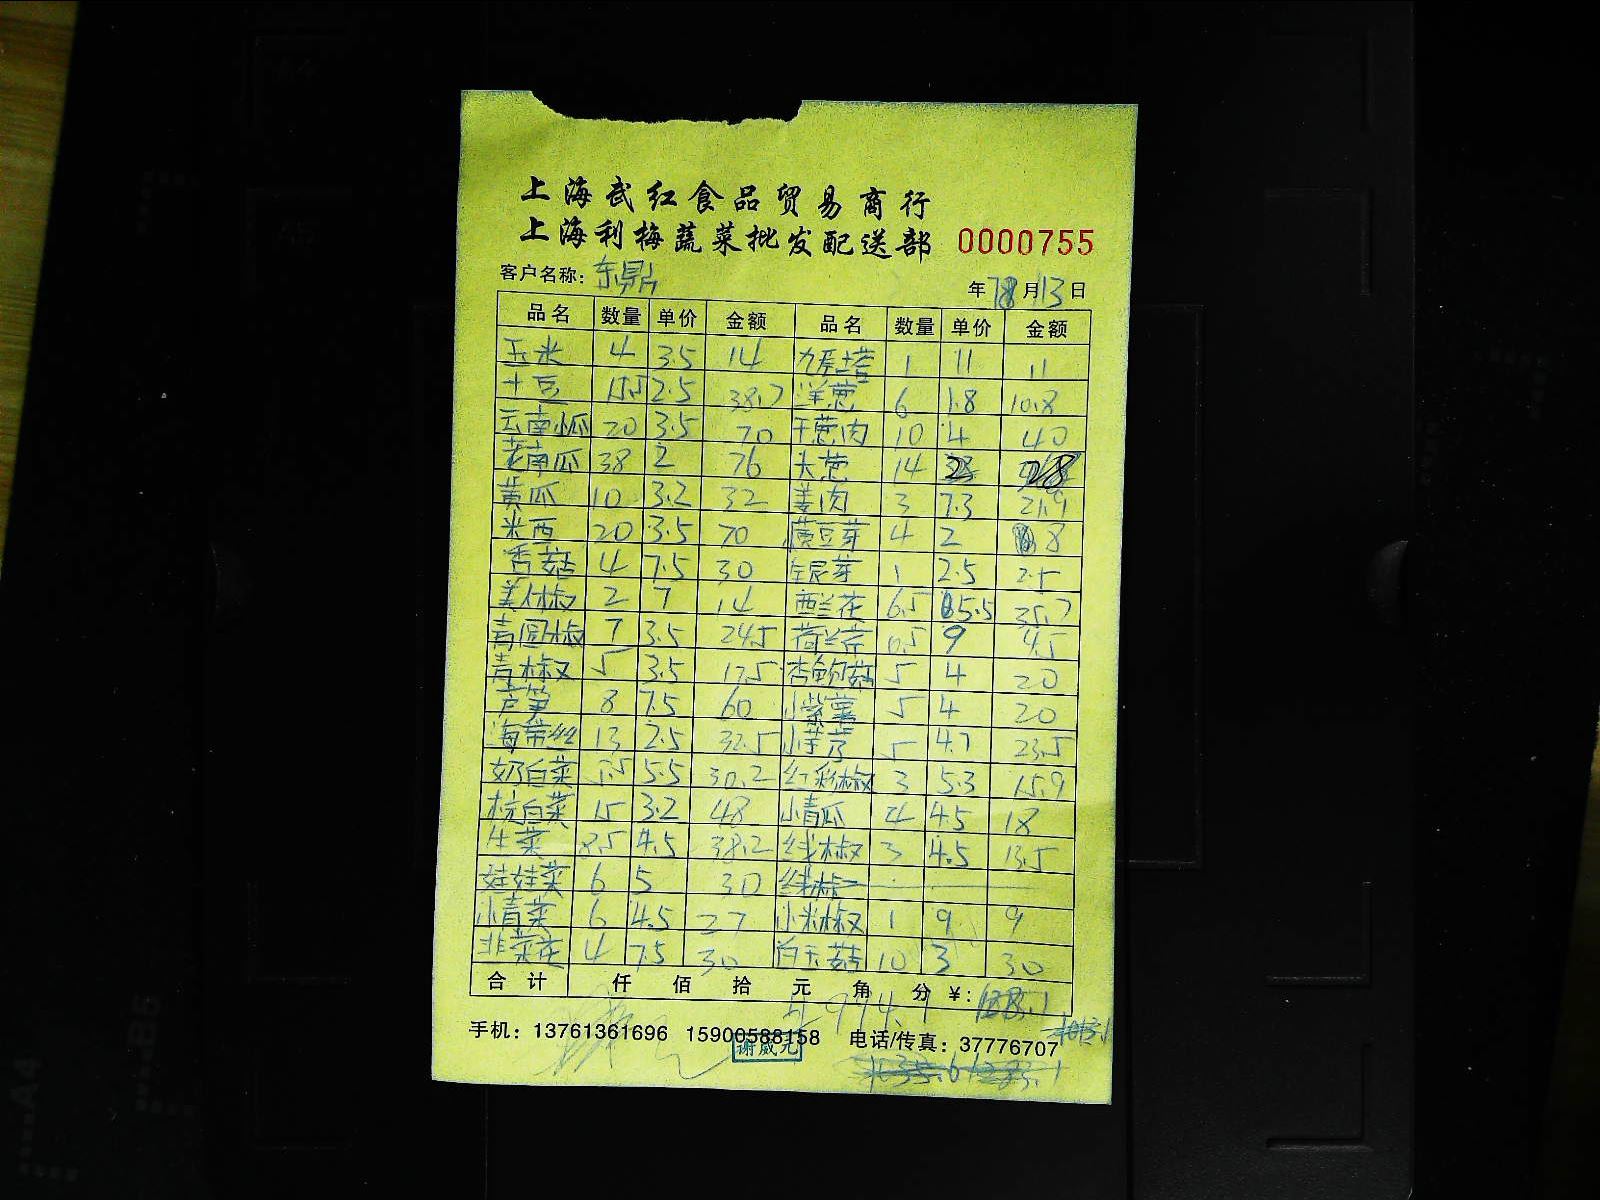 上海武红食品贸易商行
上海利梅蔬菜批发配送部 0000755
客户名称: 东鼎 年 8月13日
品名 数量 单价 金额 品名 数量 单价 金额
玉米 4 3.5 14 九层塔 1 11 11
土豆 15.5 2.5 38.7 洋葱 6 1.8 10.8
云南小瓜 20 3.5 70 干葱肉 10 4 40
老南瓜 38 2 76 大葱 14 2 28
黄瓜 10 3.2 32 姜肉 3 7.3 21.9
米西 20 3.5 70 黄豆芽 4 2 8
香菇 4 7.5 30 银芽 1 2.5 2.5
美人椒 2 7 14 西兰花 6.5 5.5 35.7
青圆椒 7 3.5 24.5 荷兰芹 0.5 9 4.5
青椒 5 3.5 17.5 杏鲍菇 5 4 20
芦笋 8 7.5 60 小紫薯 5 4 20
海带丝 13 2.5 32.5 小芋艿 5 4.7 23.5
奶白菜 5.5 5.5 30.2 红彩椒 3 5.3 15.9
杭白菜 15 3.2 48 小青瓜 4 4.5 18
生菜 8.5 4.5 38.2 线椒 3 4.5 13.5
娃娃菜 6 5 30 线椒
小青菜 6 4.5 27 小米椒 1 9 9
韭菜花 4 7.5 30 白玉菇 10 3 30
合计 仟 佰 拾 元 角 分 ¥:
994.1
手机: 13761361696 15900588158 电话/传真: 37776707
谢威元